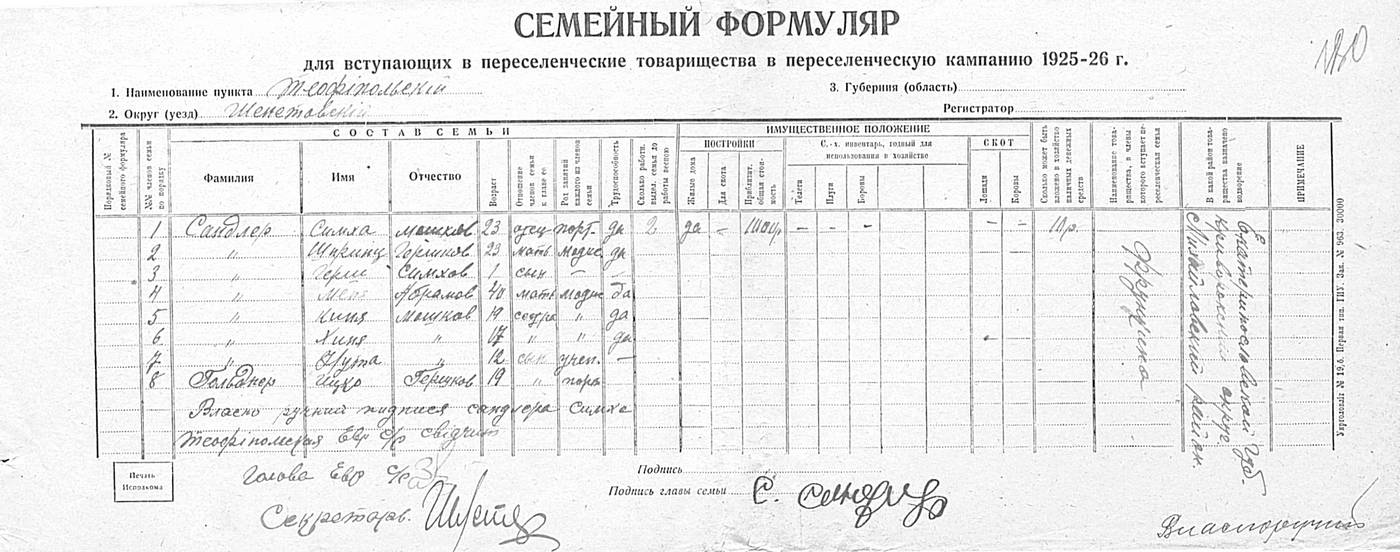 СЕМЕЙНЫЙ ФОРМУЛЯР
для вступающих в переселенческие товарищества в переселенческую кампанию 1925-26 г.
1. Наименование пункта Теофіпольскій
3. Губерния (область)
2. Округ (уезд) Шепетовскій
Регистратор
Порядковый № семейного формуляра
№№ членов семьи по порядку
СОСТАВ СЕМЬИ
Фамилия
Имя
Отчество
Возраст
Отношение членов семьи к главе ее
Род занятий каждого из членов семьи
Трудоспособность
Сколько работн. выдел. семья до работы весною
ИМУЩЕСТВЕННОЕ ПОЛОЖЕНИЕ
ПОСТРОЙКИ
Жилые дома
Для скота
Приблизит. общая стоимость
С.-х. инвентарь, годный для использования в хозяйстве
Телеги
Плуги
Бороны
СКОТ
Лошади
Коровы
Сколько может быть вложено в хозяйство наличных денежных средств
Наименование товарищества, в члены которого вступает переселенческая семья
В какой район товарищества назначено водворение
ПРИМЕЧАНИЕ
1 Сандлер Симха Мошков 23 отец порт. да 2 да – – – – – – 10р.
2 " Гершков 23 мать модис да
3 " Герш Симхов 1 сын – –
4 " Абрамов 40 мать модис да
5 " Хиня Мошков 19 сестра " да
6 " Хиня " 17 " " да
7 " " 12 сын учен. –
8 Гольднер Ицко Гершков 19 " порт
Власно ручний подпися сандлера Симхе
Теофіполская Евр с/р свідчит
Екатеринославской Губ.
Криворожский округ
Михайловский район
Печать Исполкома
Голова Евр с/р
Подпись
Подпись главы семьи С. Сандлер
Секретарь
Власноручний
Укрголовлiт № 19,6. Первая тип. ГИУ. Зак. № 963. 30000